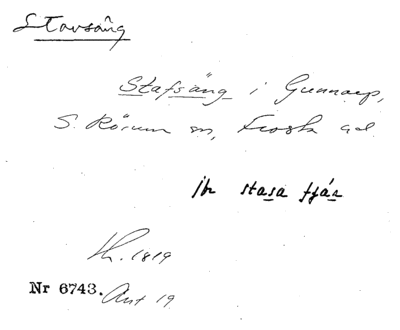 Stavsäng
Stafsäng i Gunnarp,
S. Rörum sn, Frosta hd.
jbr stasa fjár
Kh. 1819
Nr 6743. Ant 19